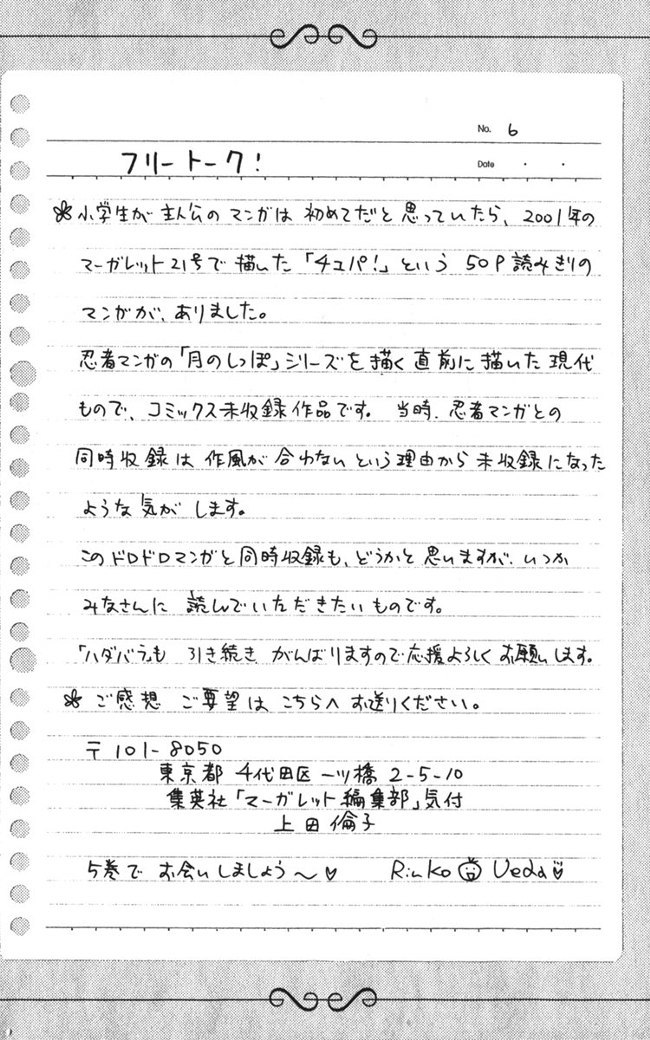 No. 6
フリートーク!
Date ・ ・
✽小学生が主人公のマンガは初めてだと思っていたら、2001年の
マーガレット21号で描いた「チュパ!」という50P読みきりの
マンガが、ありました。
忍者マンガの「月のしっぽ」シリーズを描く直前に描いた現代
もので、コミックス未収録作品です。当時、忍者マンガとの
同時収録は作風が合わないという理由から未収録になった
ような気がします。
このドロドロマンガと同時収録も、どうかと思いますが、いつか
みなさんに読んでいただきたいものです。
「ハダバラ」も引き続きがんばりますので応援よろしくお願いします。
✽ご感想ご要望はこちらへお送りください。
〒101-8050
東京都千代田区一ツ橋2-5-10
集英社「マーガレット編集部」気付
上田倫子
5巻でお会いしましょう〜♡ Rinko Ueda♡